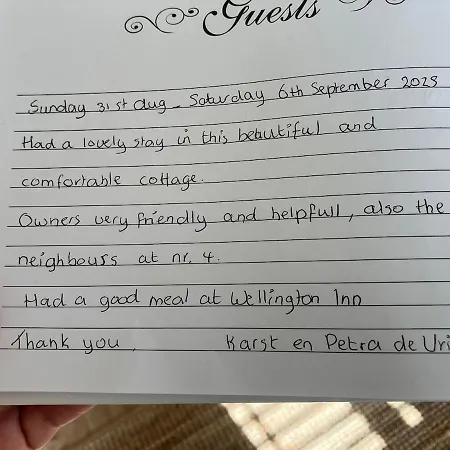 Guests
Sunday 31st Aug - Saturday 6th September 2025
Had a lovely stay in this beautiful and
comfortable cottage.
Owners very friendly and helpfull, also the
neighbours at nr. 4.
Had a good meal at Wellington Inn
Thank you, Karst en Petra de Uri